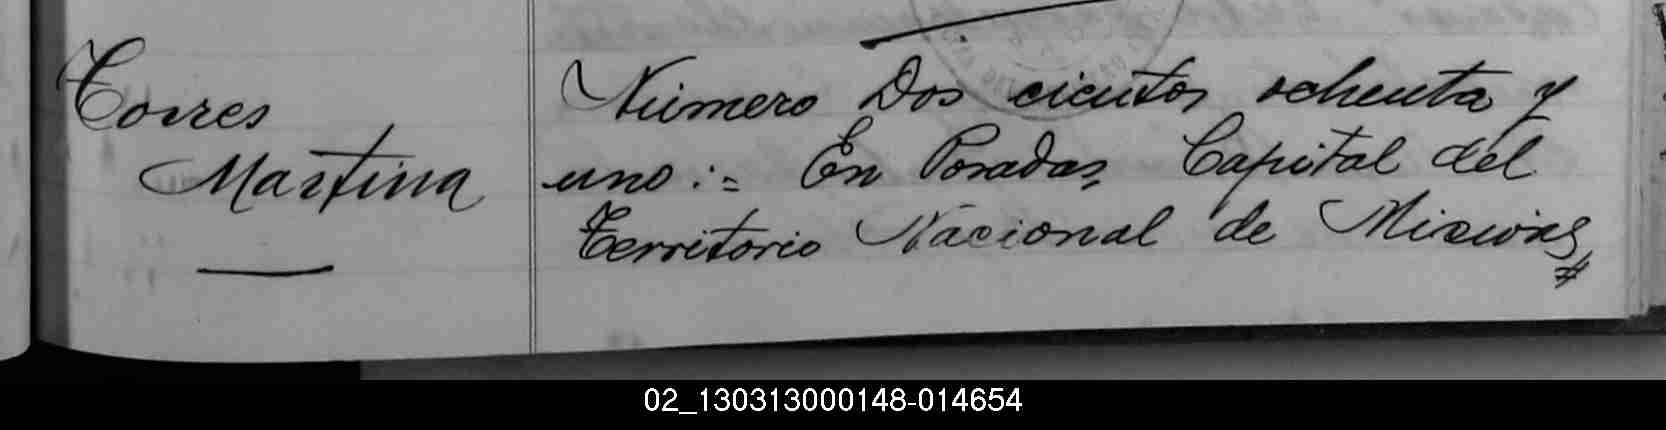 Torres
Martina
Número Dos cientos ochenta y
uno:= En Posadas, Capital del
Territorio Nacional de Misiones
02_130313000148-014654